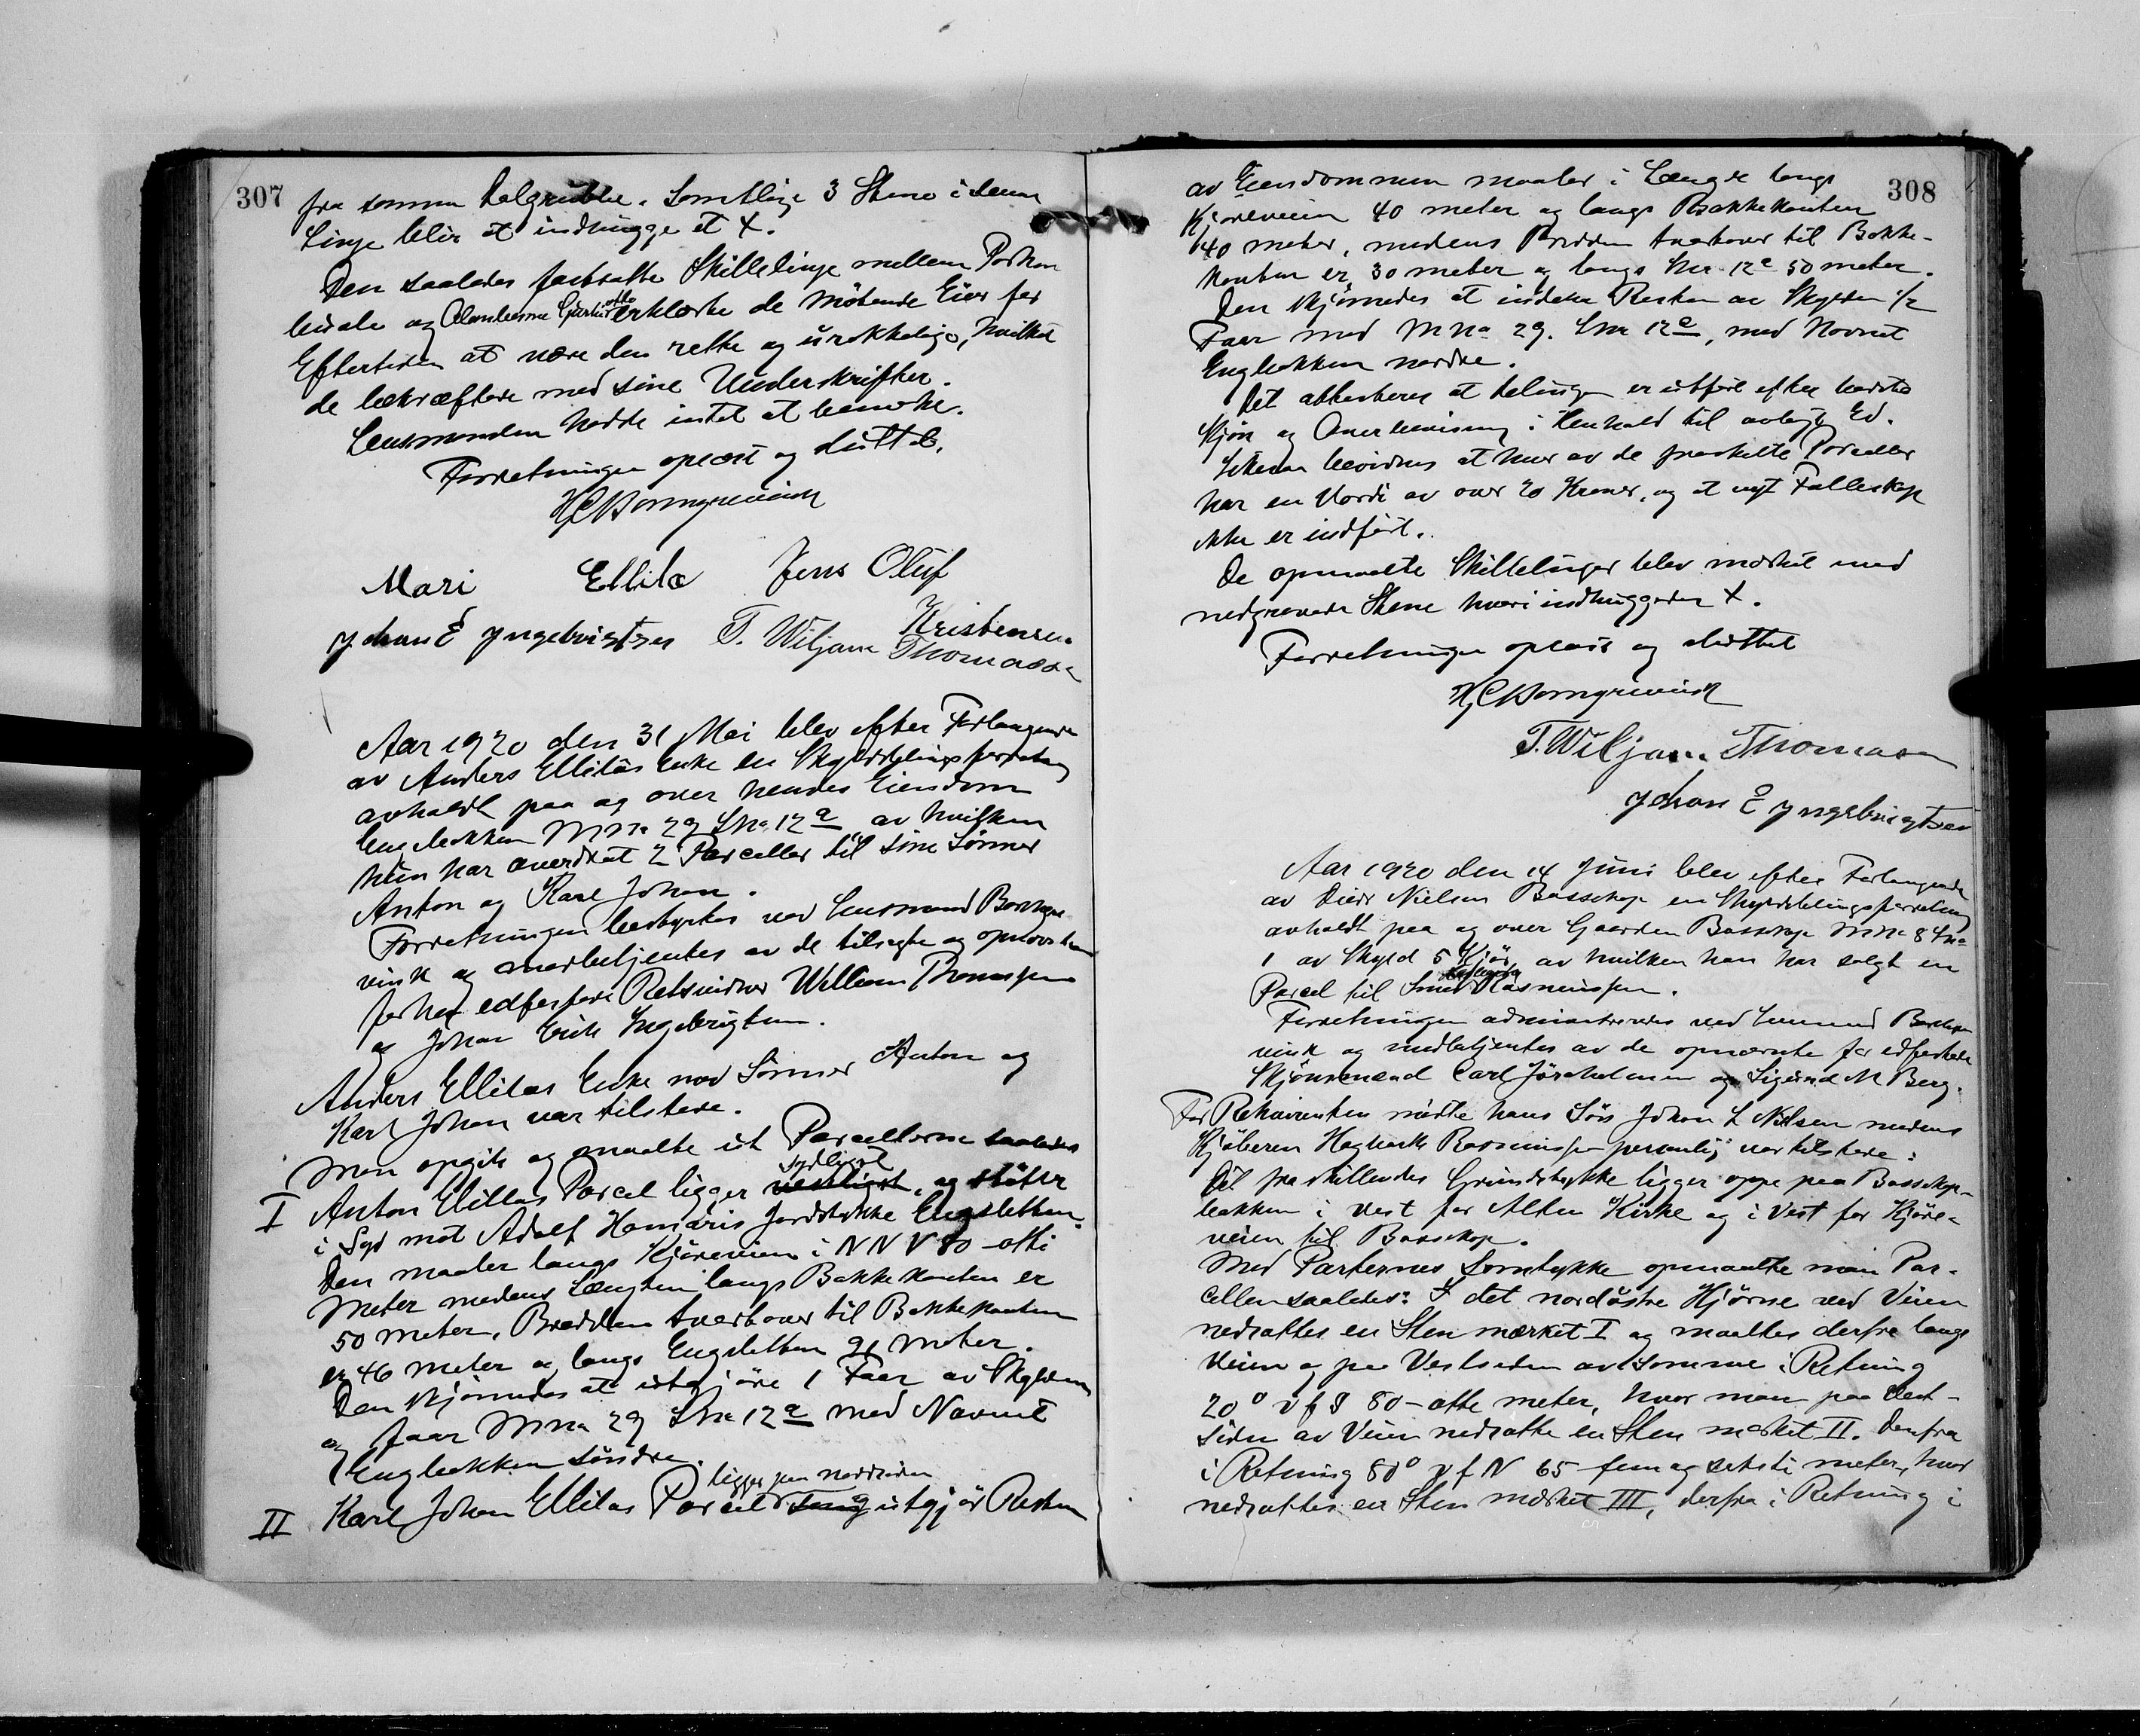 307
fra samme Dalgrubbe. Samtlige 3 Stene i denne
Linje blir at indhugge et X.
Den saaledes fastsatte Skillelinje mellem
og erklærte de møtende Eier for
Eftertiden at være den rette og urokkelige, hvilket
de bekræftede med sine Underskrifter.
Lensmanden hadde intet at bemerke.
Forretningen oplæst og sluttet.
Mari Ellila Jens Oluf
Kristensen
Johan E Yngebrigtsen T. Wiljam Thomassen
Aar 1920 den 31 Mai blev efter Forlangende
av Anders Ellilas Enke en Skylddelingsforretning
avholdt paa og over hendes Eiendom
Engbakken M No 29 L No 12a av hvilken
hun har overdrat 2 Parceller til sine Sønner
Anton og Karl Johan.
Forretningen bestyrtes ved Lensmand Borchgre
vink og medbetjentes av de tilsagte og opnævnte
før her edfæstede Retsvidner William Thomassen
og Johan Erik Ingebrigtsen.
Anders Ellilas Enke med Sønner Anton og
Karl Johan var tilstede.
Man opgik og maalte ut Parcellerne saaledes
I Anton Ellilas Parcel ligger vestligst sydligst, og støter
i Syd mot Adolf Jordstykke Engsletten.
Den maaler langs Kjøreveien i N N V 80 - otti
Meter medens Længden langs Bakkekanten er
50 meter, Bredden tverover til Bakkekanten
er 46 meter og langs Engsletten 91 meter.
Den skjønnedes at utgjøre 1 Faar av Skylden
og faar M No 29 L No 12a med Navnet
Engbakken søndre.
II Karl Johan Ellilas Parcel ligger paa nordsiden og utgjør Resten
308
av Eiendommen maaler i Længde langs
Kjøreveien 40 meter og langs Bakkekanten
40 meter, medens Bredden tverover til Bakke-
kanten er 30 meter og langs L No 12a 50 meter.
Den skjønnedes at Resten av Skylden 1/2
Faar med M No 29. L No 12e, med Navnet
Engbakken nordre.
Det attesteres at delingen er utført efter bedste
Skjøn og Overbevisning i Henhold til avlagt Ed.
Likesaa bevidnes at hver av de fraskilte Parceller
har en Værdi av over 20 Kroner, og at nyt Fælleskap
ikke er indført.
De opmaalte Skillelinjer blev merket med
nedgravede Stene hvori indhuggedes X.
Forretningen oplæst og sluttet
T. Wiljam Thomassen
Johan E Yngebrigtsen
Aar 1920 den 14 Juni blev efter Forlangende
av Nielsen Bossekop en Skylddelingsforretning
avholdt paa og over Gaarden Bossekop M No 8 L No
1 av Skyld 5 Kjør av hvilken han har solgt en
Parcel til Rasmussen.
Forretningen administreredes ved Lensmand Borchgre
vink og medbetjentes av de opnævnte før edfæstede
Skjønsmænd Carl Jøraholmen og Sigurd M Berg.
For Rekvirenten møtte hans Søn Johan L Nilsen medens
Kjøberen Rasmussen personlig var tilstede.
Det fraskillendes Grundstykke ligger oppe paa Bossekop-
bakken i vest for Alten Kirke og i Vest for Kjøre-
veien til Bossekop.
Med Parternes Samtykke opmaalte man Par-
cellen saaledes: I det nordøstre Hjørne ved Veien
nedsattes en Sten merket I og maaltes derfra langs
Veien og paa Vestsiden av samme i Retning
20° v f S 80 - otte meter, hvor man paa Vest-
siden av Veien nedsatte en Sten merket II. Derfra
i Retning 80° v f N 65 - fem og seksti meter, hvor
nedsattes en Sten merket III, derfra i Retning i